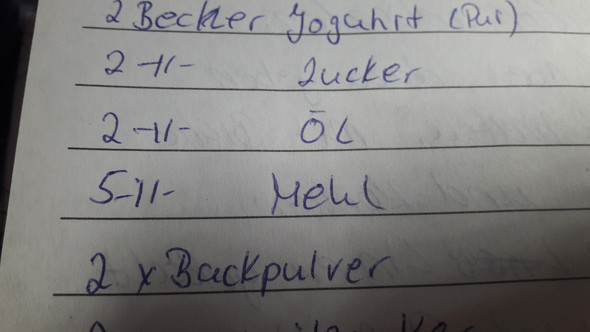 2 Becker Joguhrt (Pur)
2 -||- Zucker
2 -||- ÖL
5 -||- Mehl
2 x Backpulver